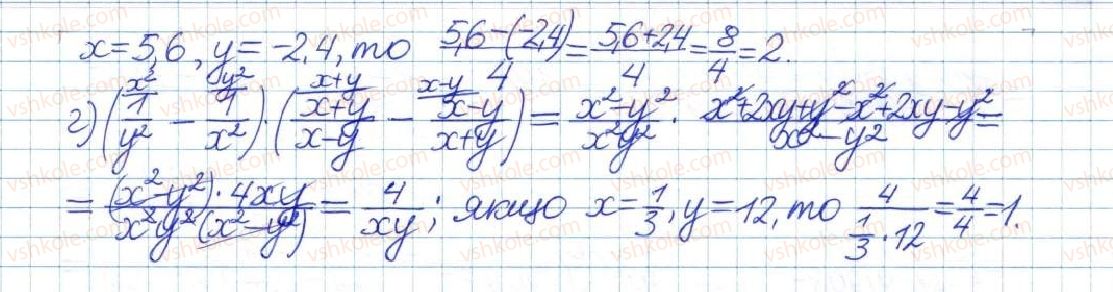 x=5,6, y=-2,4, то (5,6-(-2,4))/4 = (5,6+2,4)/4 = 8/4 = 2.
г) (1/y² - 1/x²)·((x+y)/(x-y) - (x-y)/(x+y)) = (x²-y²)/(x²y²) · (x²+2xy+y²-x²+2xy-y²)/(x²-y²) =
= ((x²-y²)·4xy)/(x²y²(x²-y²)) = 4/(xy); якщо x=1/3, y=12, то 4/(1/3·12) = 4/4 = 1.